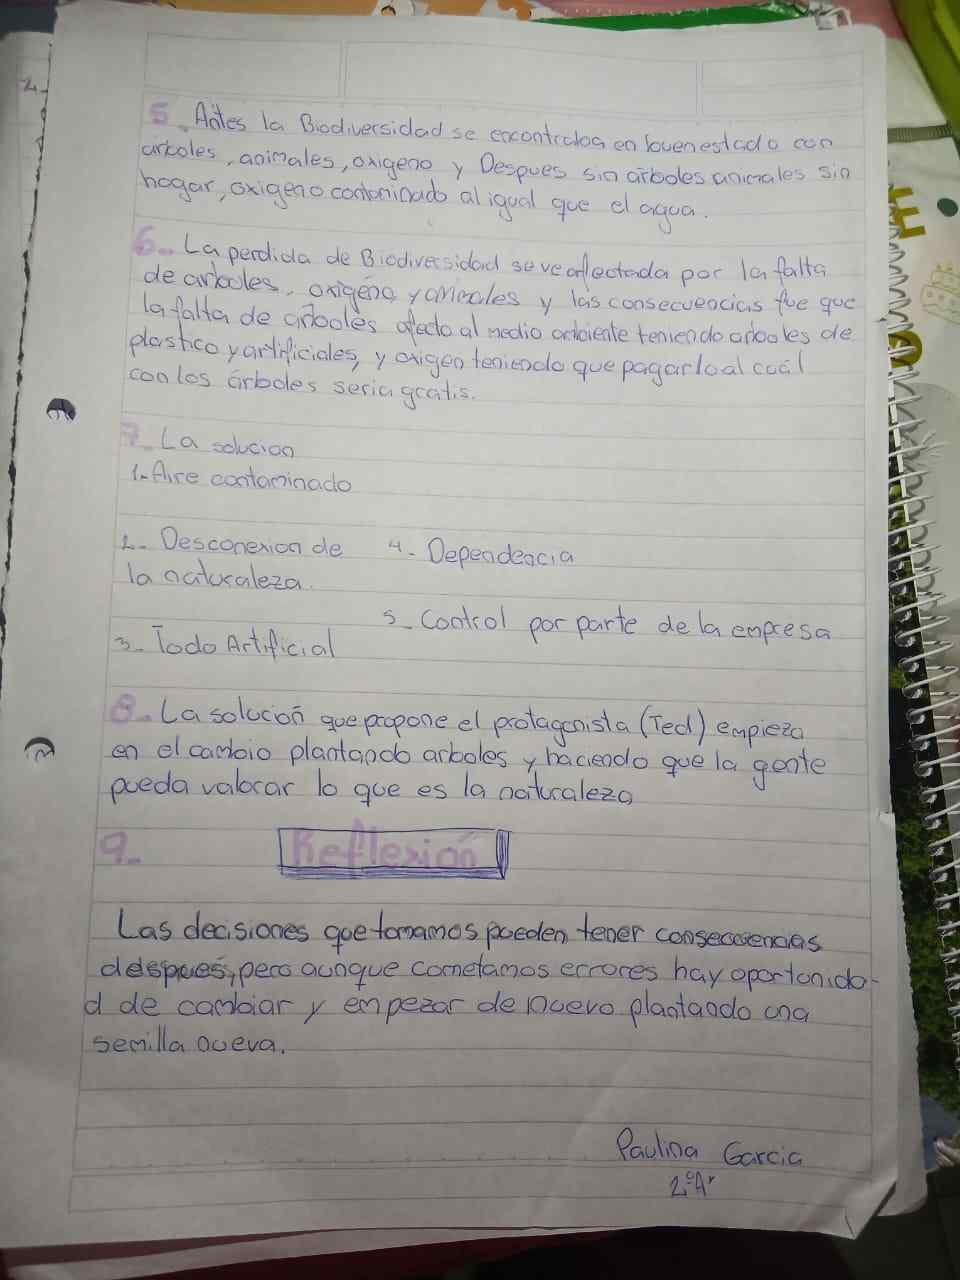 5. Antes la Biodiversidad se encontraba en buen estado con
árboles, animales, oxigeno y Despues sin árboles animales sin
hogar, oxigeno contaminado al igual que el agua.
6.- La perdida de Biodiversidad se ve afectada por la falta
de arboles, oxigeno y animales y las consecuencias fue que
la falta de arboles afecto al medio ambiente teniendo arboles de
plastico y artificiales, y oxigen teniendo que pagarlo al cual
con los árboles seria gratis.
7. La solucion
1.- Aire contaminado
2.- Desconexion de
la naturaleza.
4.- Dependencia
5.- Control por parte de la empresa
3.- Todo Artificial
8.- La solución que propone el protagonista (Ted) empieza
en el cambio plantando arboles y haciendo que la gente
pueda valorar lo que es la naturaleza
9.- Reflexión
Las decisiones que tomamos pueden tener consecuencias
despues, pero aunque cometamos errores hay oportunida-
d de cambiar y empezar de nuevo plantando una
semilla nueva.
Paulina Garcia
2°A